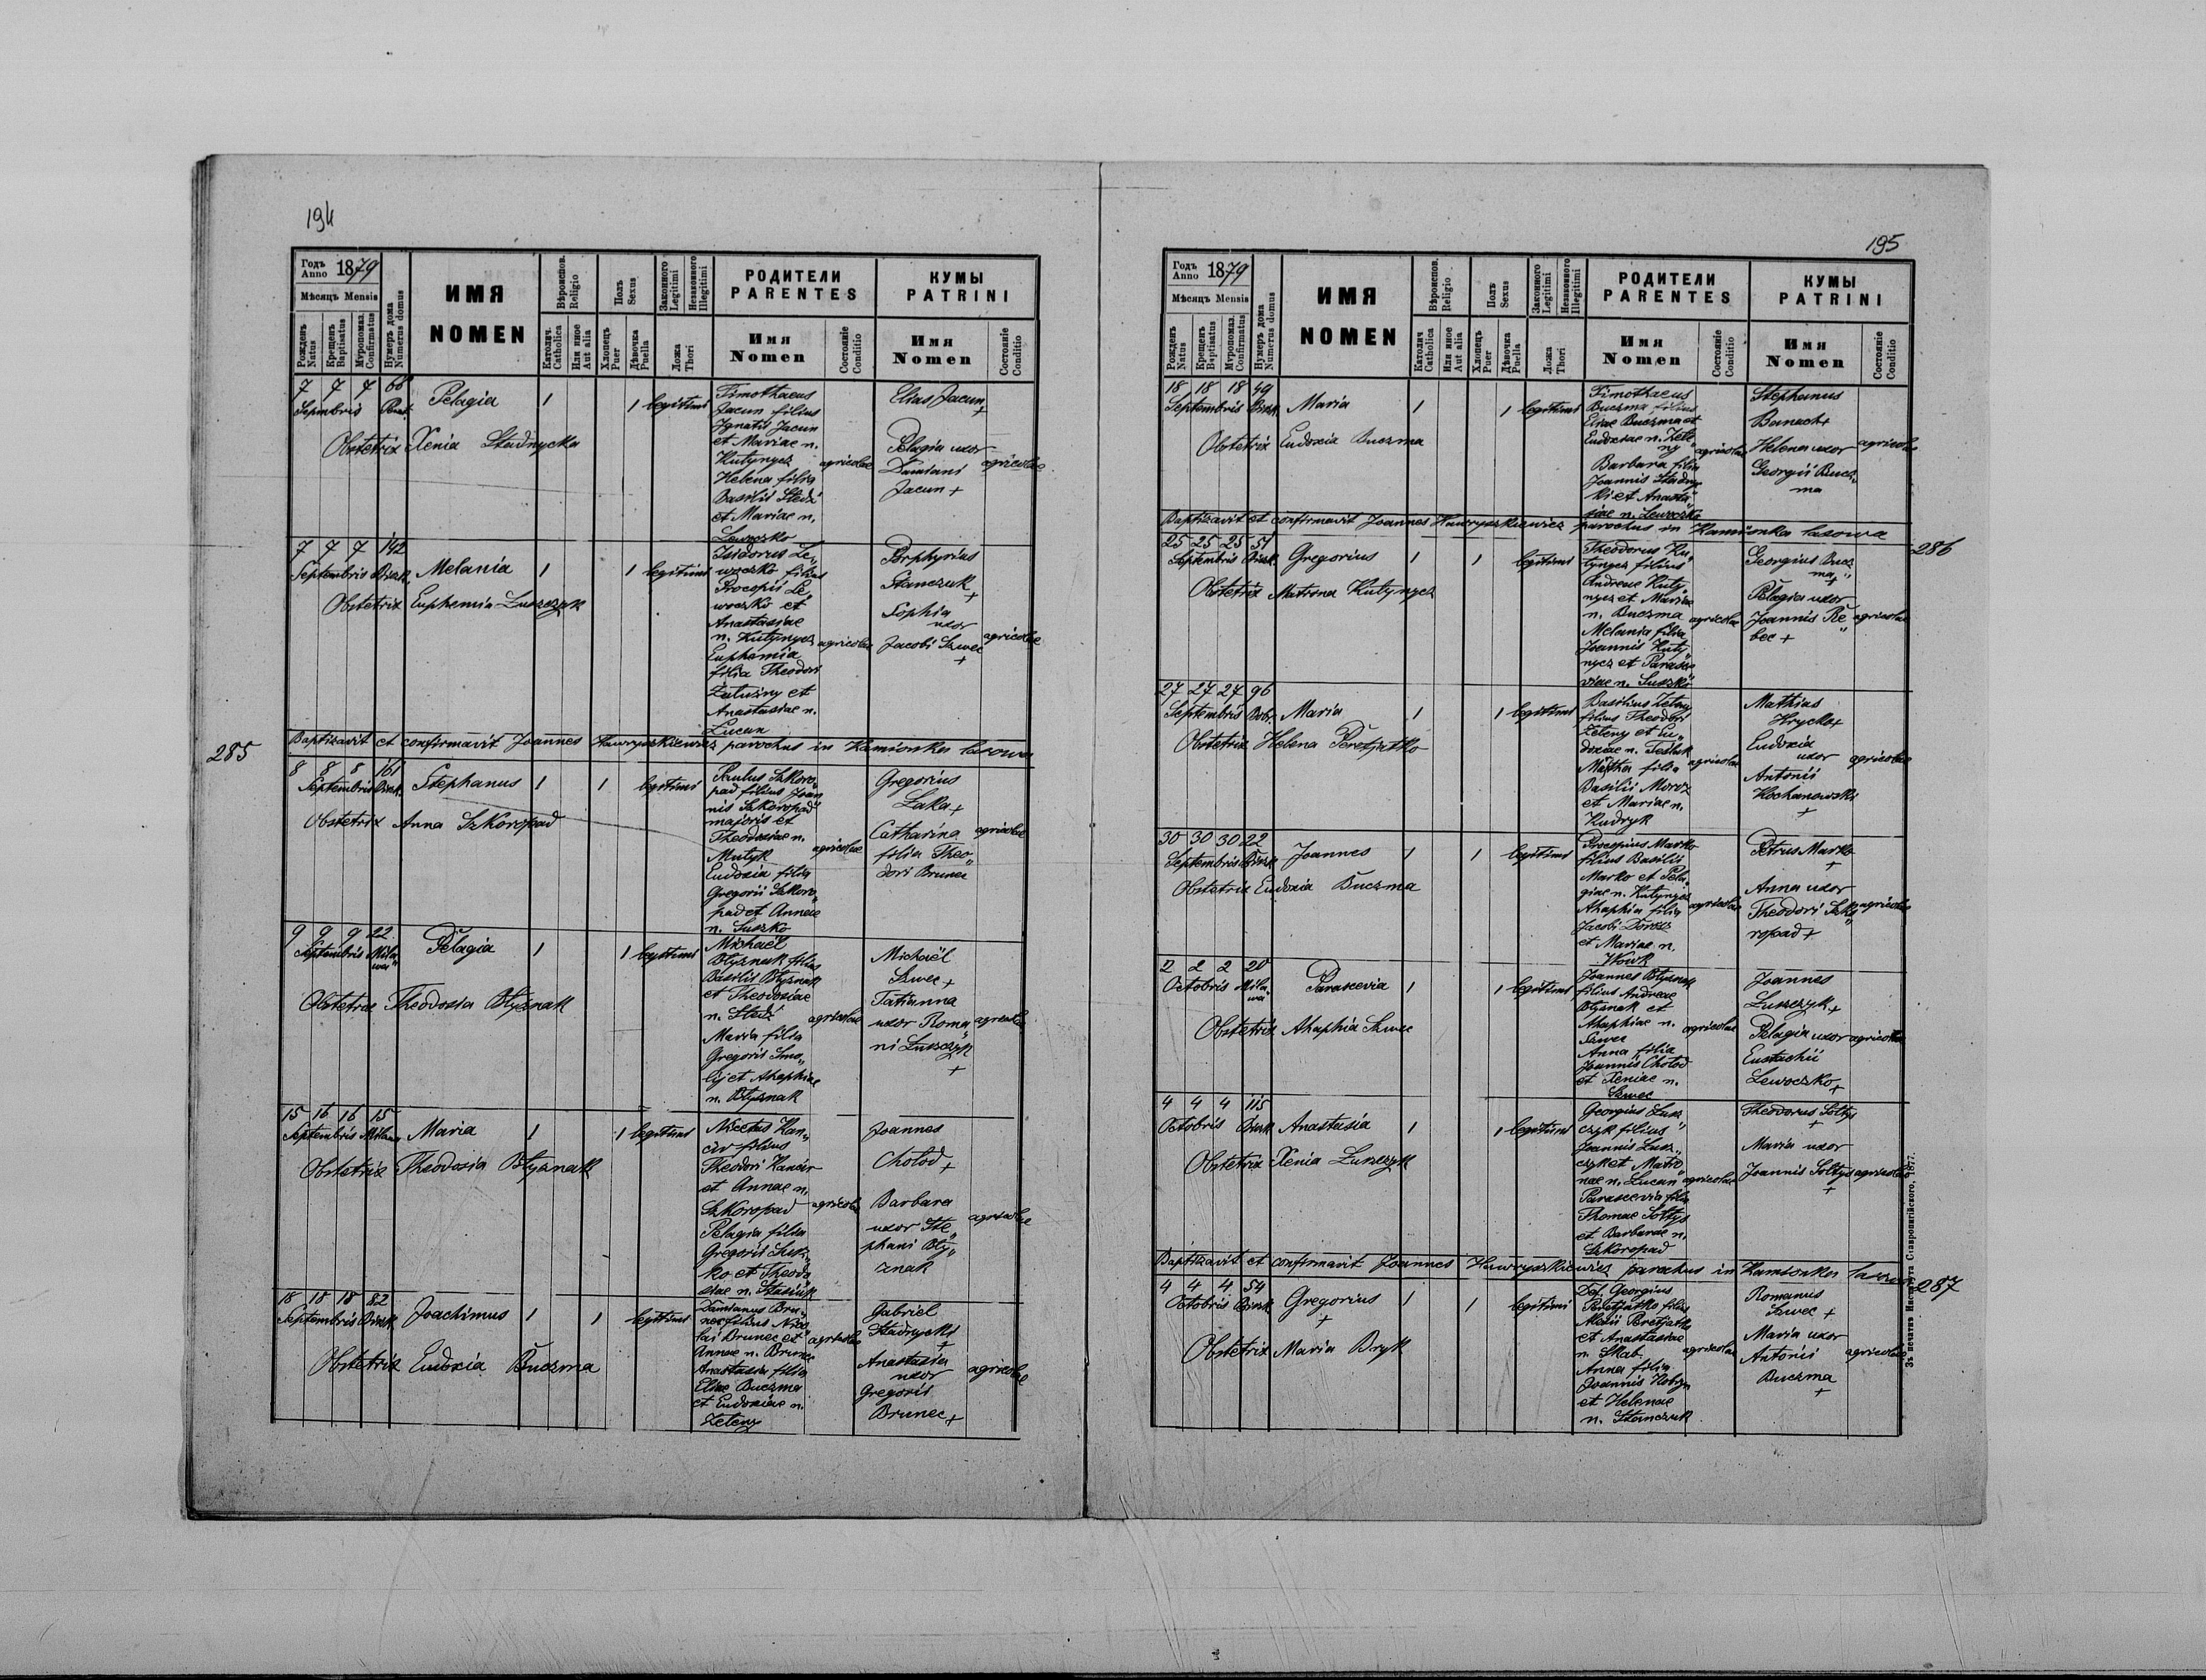 194
Годъ Anno 1879
Мѣсяцъ Mensis
Рожденъ Natus
Крещенъ Baptisatus
Мѵропомаз. Confirmatus
Нумеръ дома Numerus domus
ИМЯ
NOMEN
Вѣроиспов. Religio
Католич. Catholica
Или иное Aut alia
Полъ Sexus
Хлопецъ Puer
Дѣвочка Puella
Законного Legitimi
Незаконного Illegitimi
Ложа Thori
РОДИТЕЛИ
PARENTES
Имя Nomen
Состояніе Conditio
КУМЫ
PATRINI
Имя Nomen
Состояніе Conditio
7 7 7 68
Septembris
Pelagia 1 1 legitimi
Obstetrix Xenia Stadnycka
Timothaeus
Jacun filius
Ignatii Jacun
et Mariae n.
Kutynycz
Helena filia
Basilii Stedz
et Mariae n.
Lewoczko
agricolae
Elias Jacun +
Pelagia uxor
Damiani
Jacun +
agricolae
7 7 7 142
Septembris
Melania 1 1 legitimi
Obstetrix Euphemia Luszczyk
Isidorus Le„
woczko filius
Procopii Le„
woczko et
Anastasiae
n. Kutynycz
Euphemia
filia Theodori
Zatuzny et
Anastasiae n.
Lucan
agricolae
Porphyrius
Stanczuk +
Sophia
uxor
Jacobi Szwec
+
agricolae
Baptisavit et confirmavit Joannes Hawryszkiewicz parochus in Kamionka lasowa
285
8 8 8 161
Septembris
Stephanus 1 1 legitimi
Obstetrix Anna Szkoropad
Paulus Szkoro„
pad filius Joan
nis Szkoropad
majoris et
Theodosiae n.
Mutyk
Eudoxia filia
Gregorii Szkoro„
pad et Annae
n. Suszko
agricolae
Gregorius
Laka +
Catharina
filia Theo„
dori Brunec
agricolae
9 9 9 22
Septembris
Pelagia 1 1 legitimi
Obstetrix Theodosia Błyznak
Michaël
Błyznak filius
Basilii Błyznak
et Theodosiae
n. Stedz
Maria filia
Gregorii Smo„
lij et Ahaphiae
n. Błyznak
agricolae
Michaël
Szwec +
Tatianna
uxor Roma
ni Luszczyk
+
agricolae
15 16 16 15
Septembris
Maria 1 1 legitimi
Obstetrix Theodosia Błyznak
Nicetus Kan„
cir filius
Theodori Kancir
et Annae n.
Szkoropad
Pelagia filia
Gregorii Susz„
ko et Theodo
siae n. Stasiuk
agricolae
Joannes
Chołod +
Barbara
uxor Ste„
phani Błÿ„
znak
agricolae
18 18 18 82
Septembris
Joachimus 1 1 legitimi
Obstetrix Eudoxia Buczma
Damianus Bru„
nec filius Nico„
lai Brunec et
Annae n. Brunec
Anastasia filia
Eliae Buczma
et Eudoxiae n.
Zeleny
agricolae
Gabriel
Stadnycki
+
Anastasia
uxor
Gregorii
Brunec +
agricolae
195
Годъ Anno 1879
Мѣсяцъ Mensis
Рожденъ Natus
Крещенъ Baptisatus
Мѵропомаз. Confirmatus
Нумеръ дома Numerus domus
ИМЯ
NOMEN
Вѣроиспов. Religio
Католич. Catholica
Или иное Aut alia
Полъ Sexus
Хлопецъ Puer
Дѣвочка Puella
Законного Legitimi
Незаконного Illegitimi
Ложа Thori
РОДИТЕЛИ
PARENTES
Имя Nomen
Состояніе Conditio
КУМЫ
PATRINI
Имя Nomen
Состояніе Conditio
18 18 18 49
Septembris
Maria 1 1 legitimi
Obstetrix Eudoxia Buczma
Timothaeus
Buczma filius
Eliae Buczma et
Eudoxiae n. Zele
ny
Barbara filia
Joannis Stadny
ki et Anasta„
siae n. Lewoczko
agricolae
Stephanus
Banach +
Helena uxor
Georgii Bucz„
ma
agricolae
Baptisavit et confirmavit Joannes Hawryszkiewicz parochus in Kamionka lasowa
25 25 25 51
286
Septembris
Gregorius 1 1 legitimi
Obstetrix Matrona Kutynycz
Theodorus Ku„
tynycz filius
Andreae Kuty„
nycz et Mariae
n. Buczma
Melania filia
Joannis Kuty„
nycz et Parasce
viae n. Suszko
agricolae
Georgius Bucz
ma +
Pelagia uxor
Joannis Re„
bec +
agricolae
27 27 27 96
Septembris
Maria 1 1 legitimi
Obstetrix Helena Peretjatko
Basilius Zeleny
filius Theodori
Zeleny et Eu„
doxiae n. Tesluk
Martha filia
Basilii Moroz
et Mariae n.
Kudryk
agricolae
Mathias
Hrycko +
Eudoxia
uxor
Antonii
Kochanowski
+
agricolae
30 30 30 22
Septembris
Joannes 1 1 legitimi
Obstetrix Eudoxia Buczma
Procopius Marko
filius Basilii
Marko et Pela„
giae n. Kutynycz
Ahaphia filia
Jacobi Dorosz
et Mariae n.
Wowk
agricolae
Petrus Marko
+
Anna uxor
Theodori Szko„
ropad +
agricolae
2 2 2 20
Octobris
Parascevia 1 1 legitimi
Obstetrix Ahaphia Szwec
Joannes Błyznak
filius Andreae
Błyznak et
Ahaphiae n.
Szwec
Anna filia
Joannis Chołod
et Xeniae n.
Szwec
agricolae
Joannes
Luszczyk +
Pelagia uxor
Eustachii
Lewoczko +
agricolae
4 4 4 115
Octobris
Anastasia 1 1 legitimi
Obstetrix Xenia Luszczyk
Georgius Lusz„
czyk filius
Joannis Lusz„
czyk et Matro„
nae n. Lucan
Parascevia filia
Thomae Sołtys
et Barbarae n.
Szkoropad
agricolae
Theodorus Sołtys
+
Maria uxor
Joannis Sołtys
+
agricolae
Baptisavit et confirmavit Joannes Hawryszkiewicz parochus in Kamionka lasowa
4 4 4 54
287
Octobris
Gregorius 1 1 legitimi
+
Obstetrix Maria Dryk
Def. Georgius
Peretjatko filius
Alexii Peretjatko
et Anastasiae
n. Skab
Anna filia
Joannis
et Helenae
n. Stanczuk
agricolae
Romanus
Szwec +
Maria uxor
Antonii
Buczma
+
agricolae
Зъ печатнѣ Института Ставропигійского, 1877.